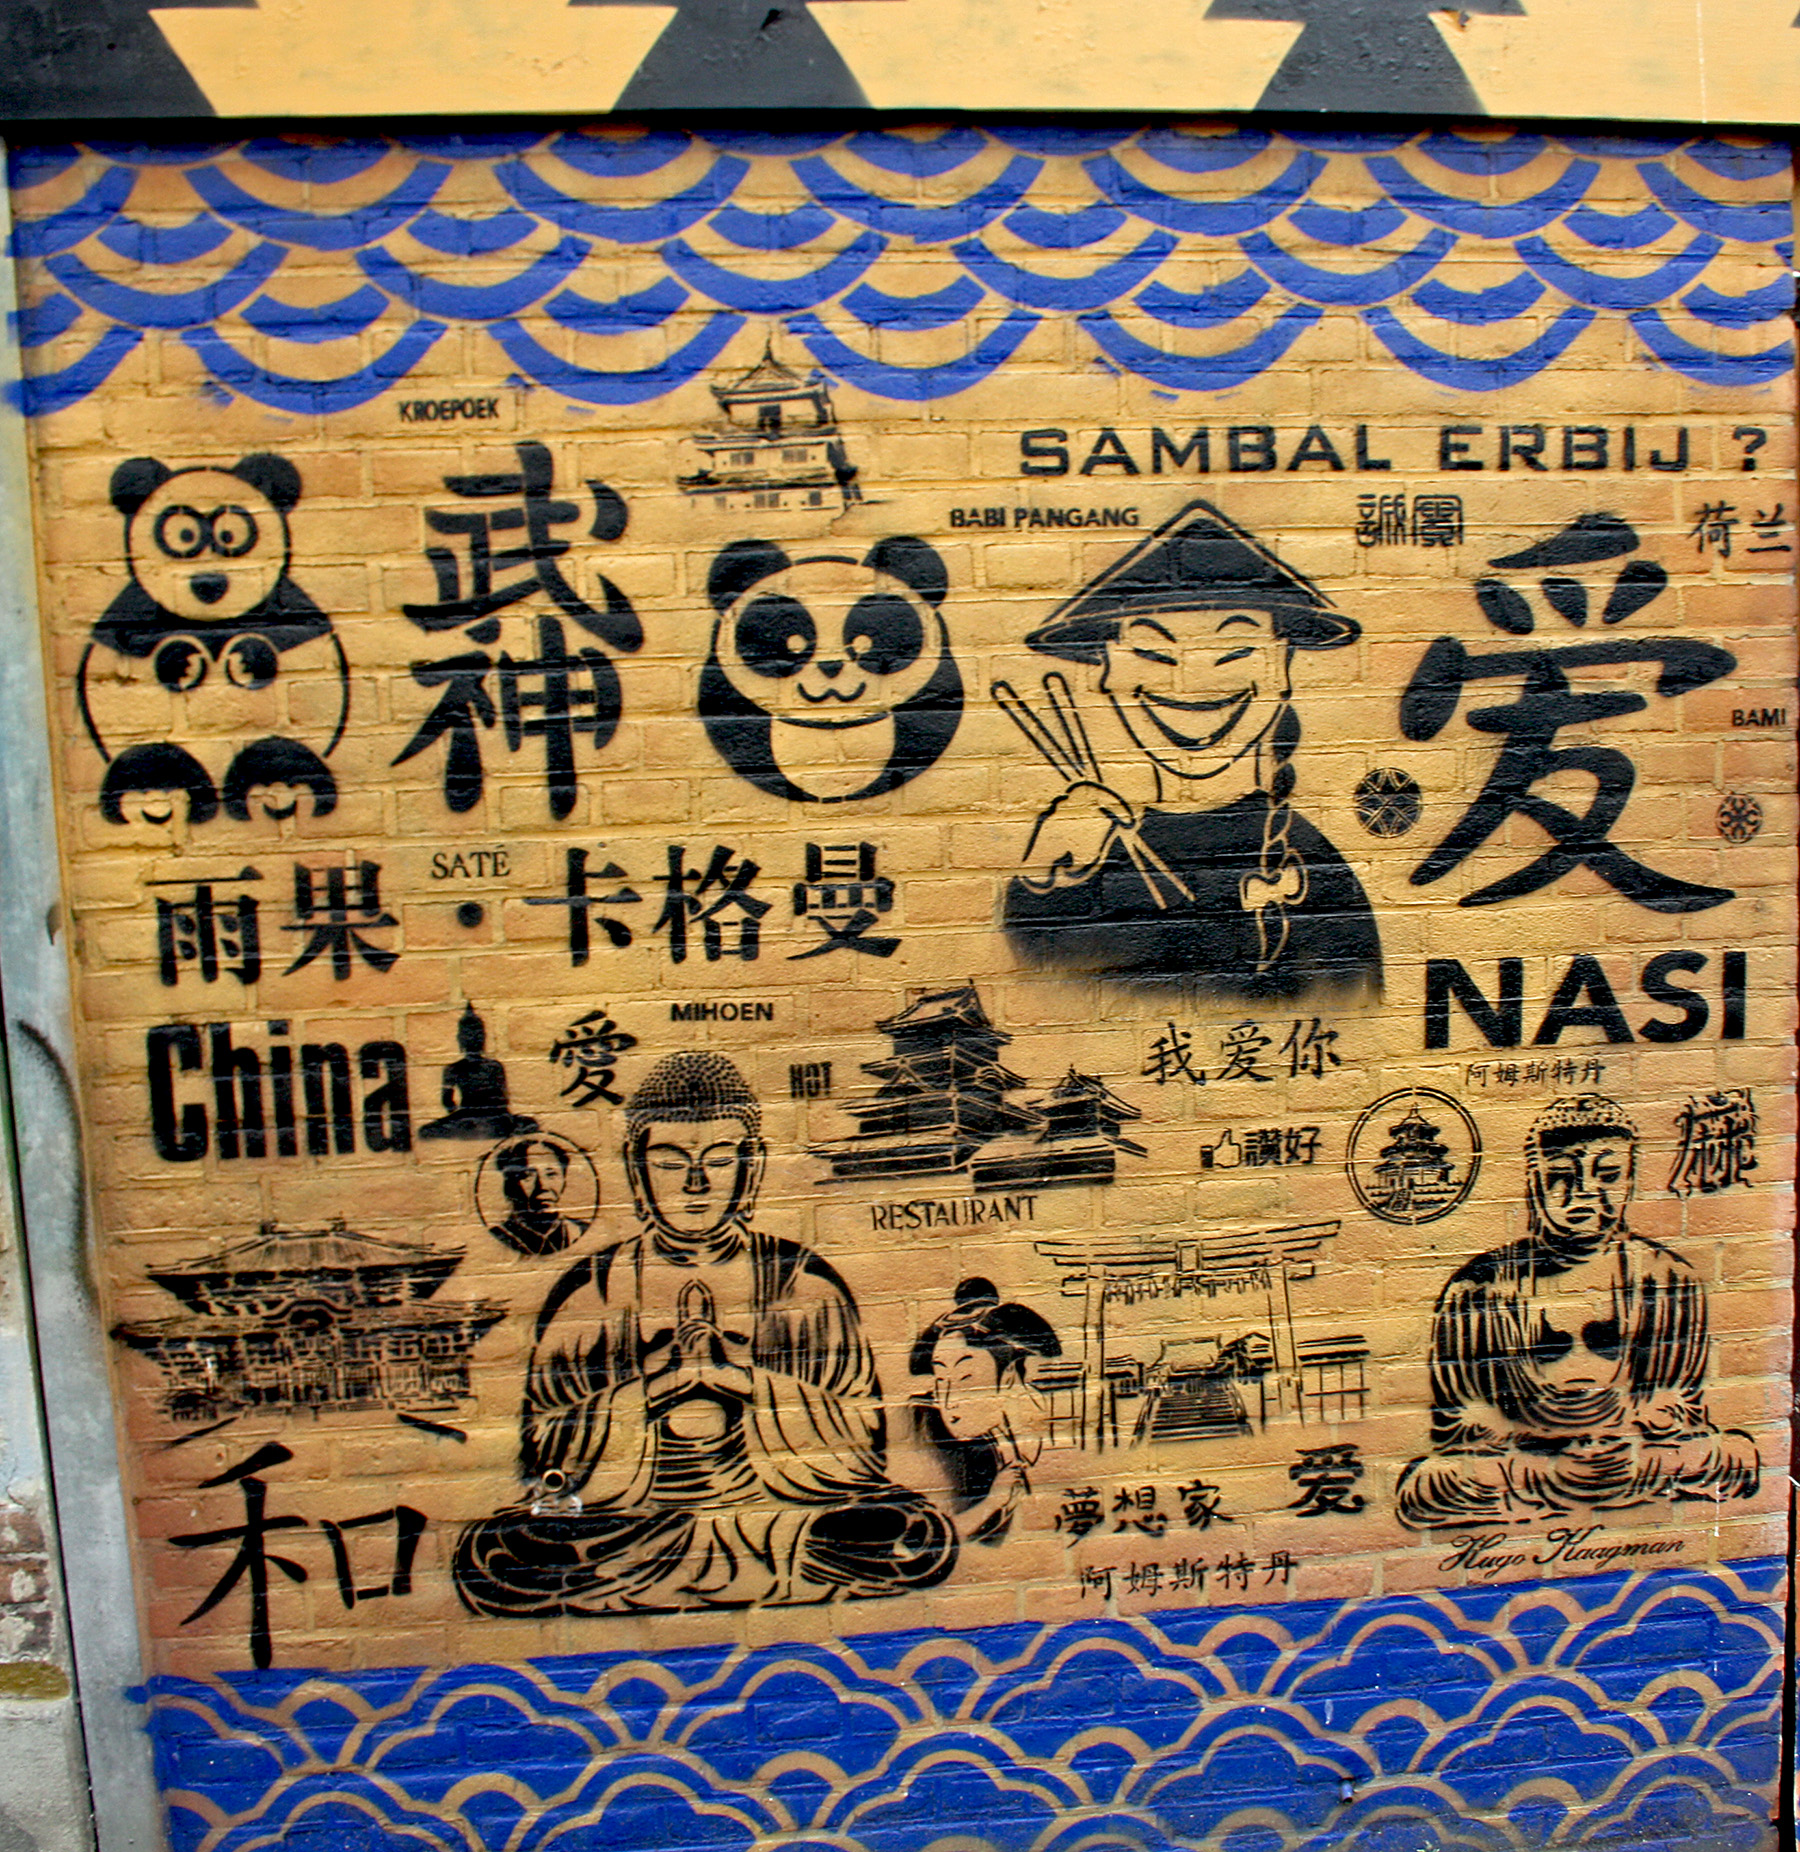 KROEPOEK
SAMBAL ERBIJ ?
BABI PANGANG
荷兰
武神
爱
BAMI
SATÉ
雨果·卡格曼
NASI
China
愛
MIHOEN
HOT
我爱你
阿姆斯特丹
讚好
RESTAURANT
和
夢想家
爱
阿姆斯特丹
Hugo Kaagman